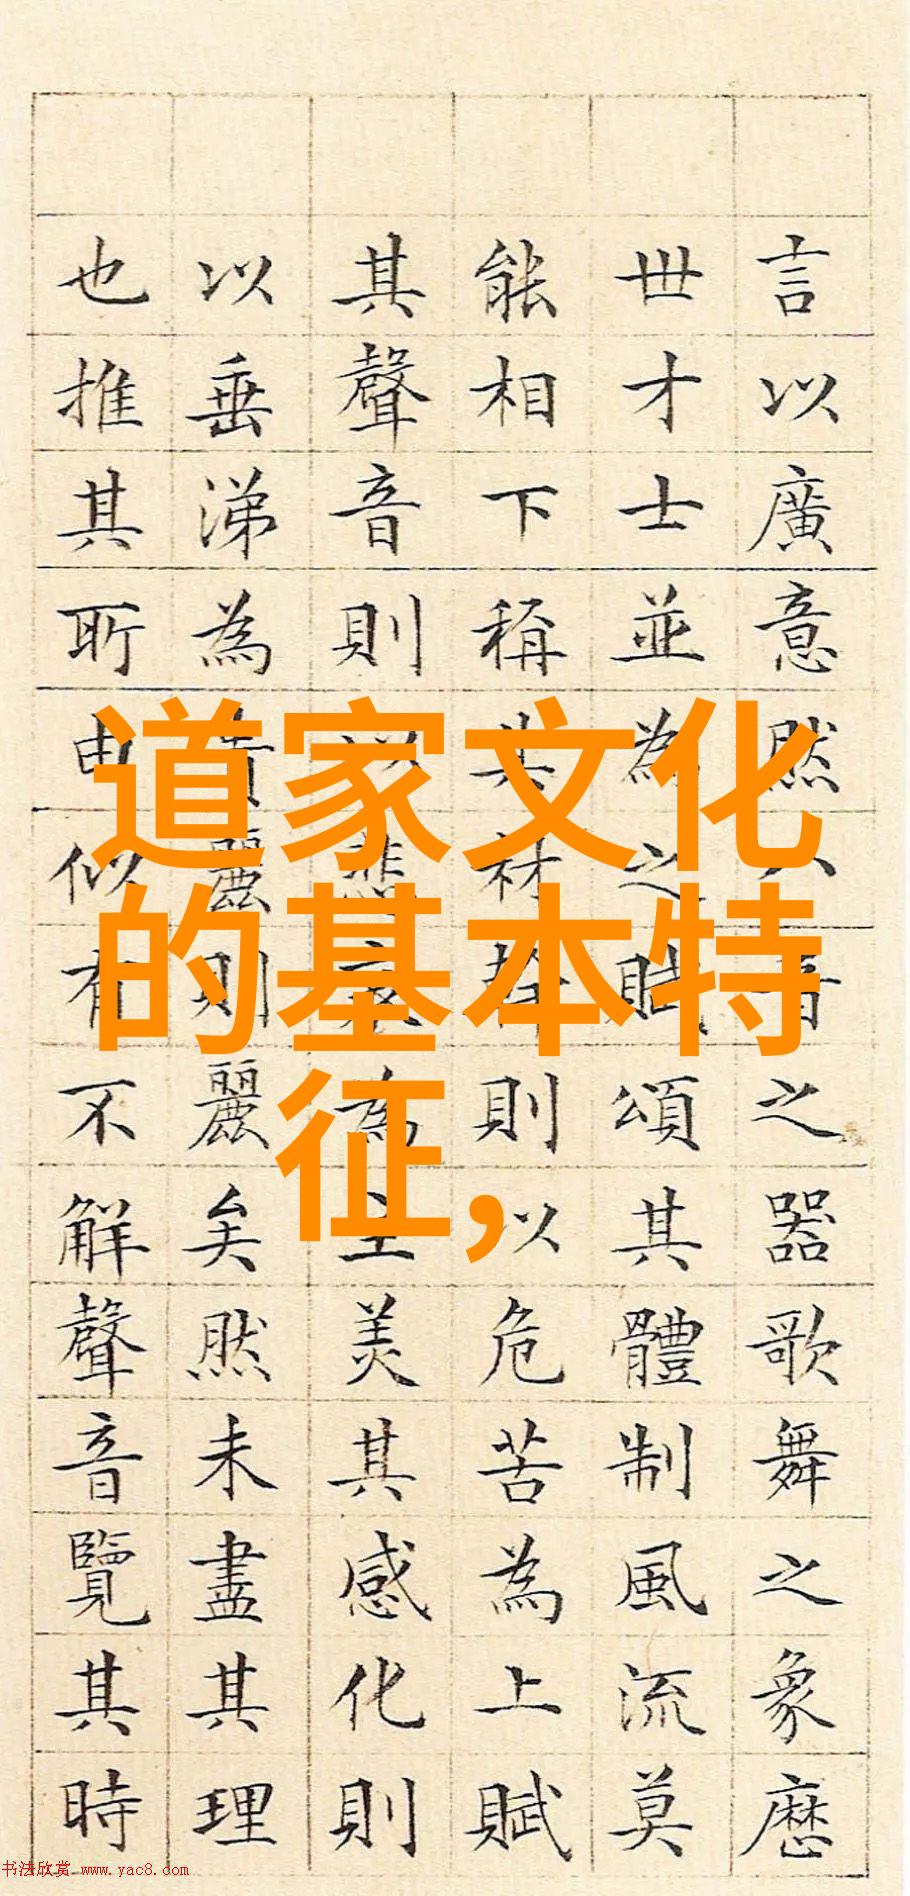 道家文化
的基本特
征,
言以廣意然八音之器歌舞之象歷
世才士並為之賦頌其體制風流莫
能相下稱其材幹則以危苦為上賦
其聲音則以悲哀為主美其感化則
以垂涕為貴麗則麗矣然未盡其理
也推其所由似有不解聲音覽其時
书法欣赏 www.yac8.com